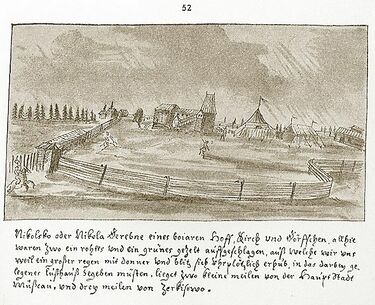 52
Nikolsko oder Nikola Derebne eines boiaren Hoff, Kirch und Dörffchen, alhie
waren zwo ein rohtes und ein grünes gezelt auffgeschlagen, auß welche wir uns
weil ein großer regen mit donner und blitz sich uhrplötzlich erhub, in das darbey ge
legenes lusthauß begeben müsten, lieget zwo kleine meilen von der Haupt Stadt
Müskau, und drey meilen von